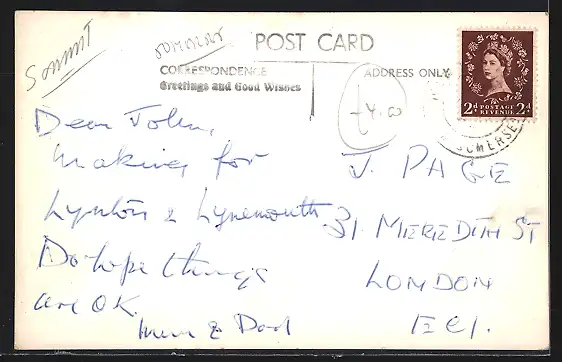 SOMMT
SOMERSET
POST CARD
CORRESPONDENCE
ADDRESS ONLY
Greetings and Good Wishes
£4.00
2d POSTAGE REVENUE 2d
SOMERSET
Dear John,
Making for
Lynton & Lynemouth
Do hope things
are OK.
Mum & Dad
J. PAGE
31. MEREDITH ST
LONDON
EC1.